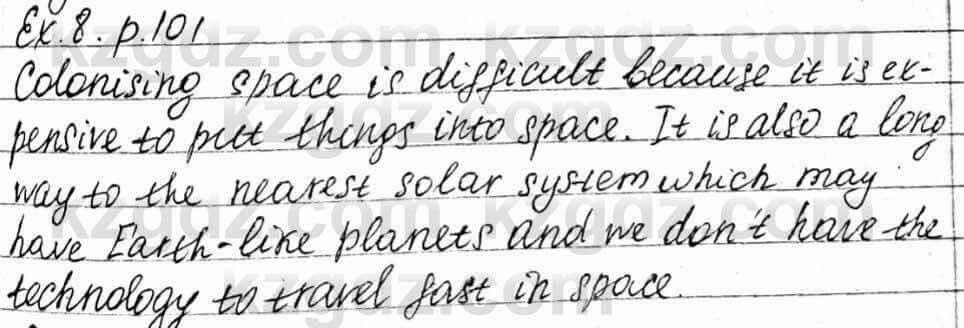 Ex.8. p.101
Colonising space is difficult because it is ex-
pensive to put things into space. It is also a long
way to the nearest solar system which may
have Earth-like planets and we don't have the
technology to travel fast in space.